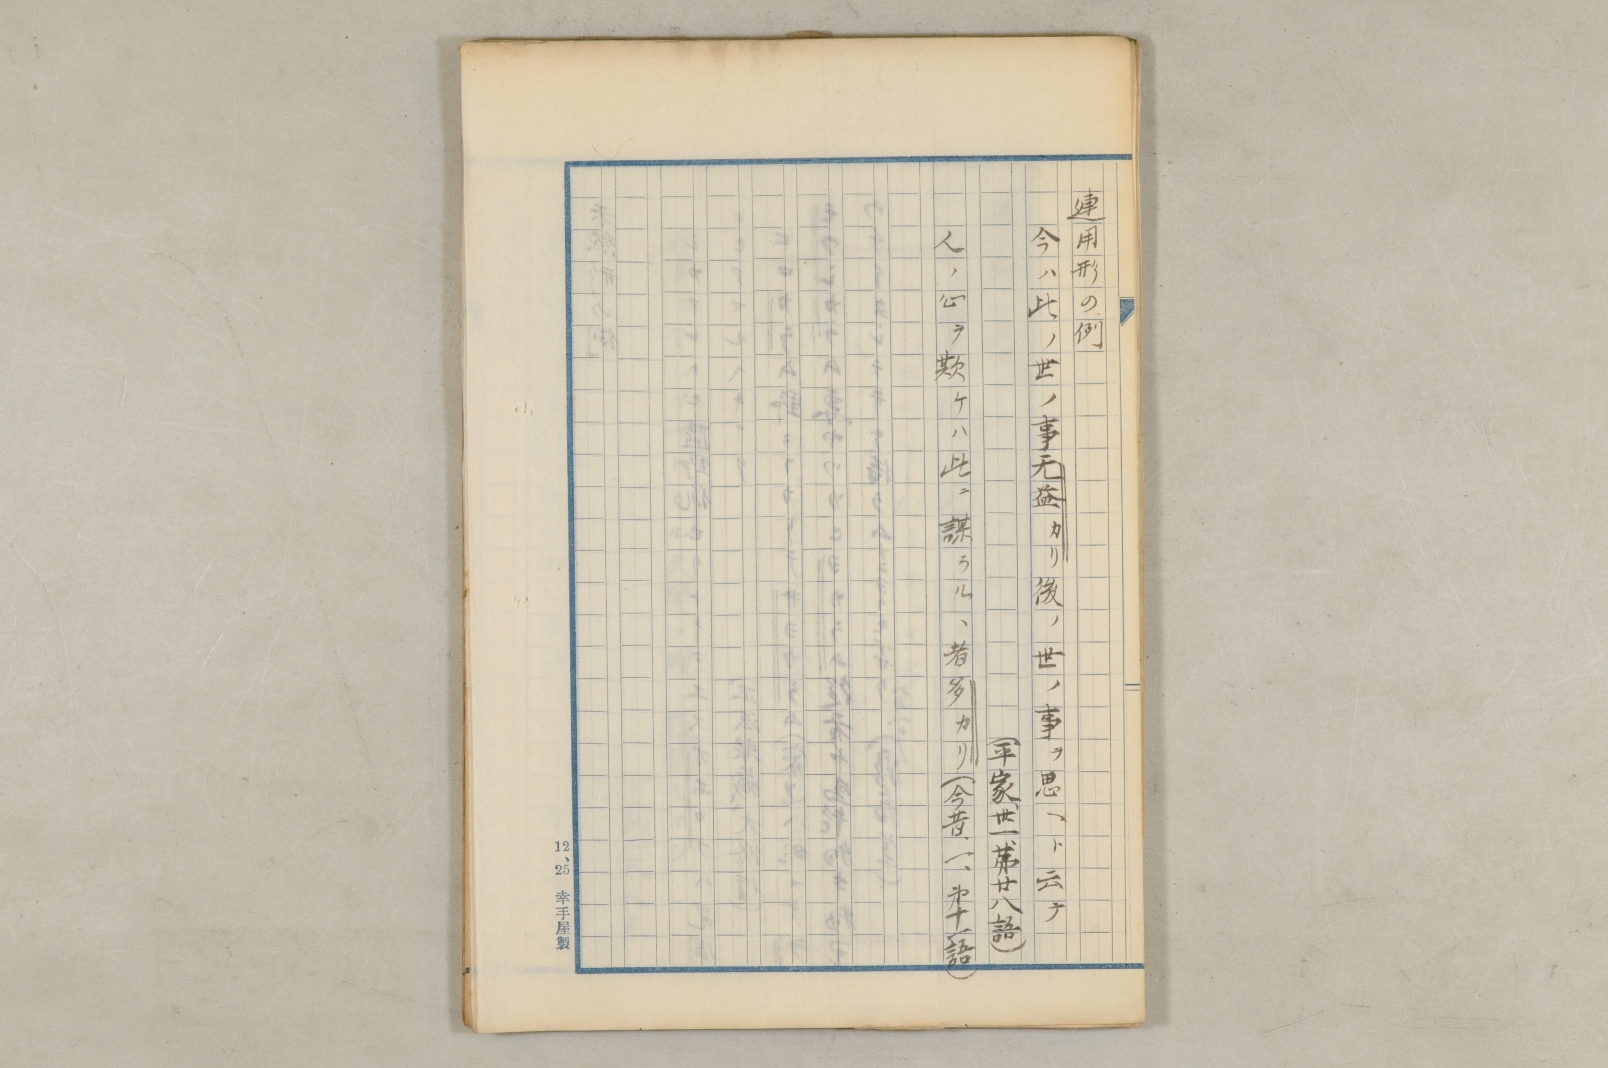 連用形の例
今ハ此ノ世ノ事无益カリ後ノ世ノ事ヲ思ヘト云テ
(平家、世一、第廿八語)
人ノ心ヲ欺ケハ此ニ謀ラル、者多カリ(今昔、一、第十一語)
12、25 幸手屋製